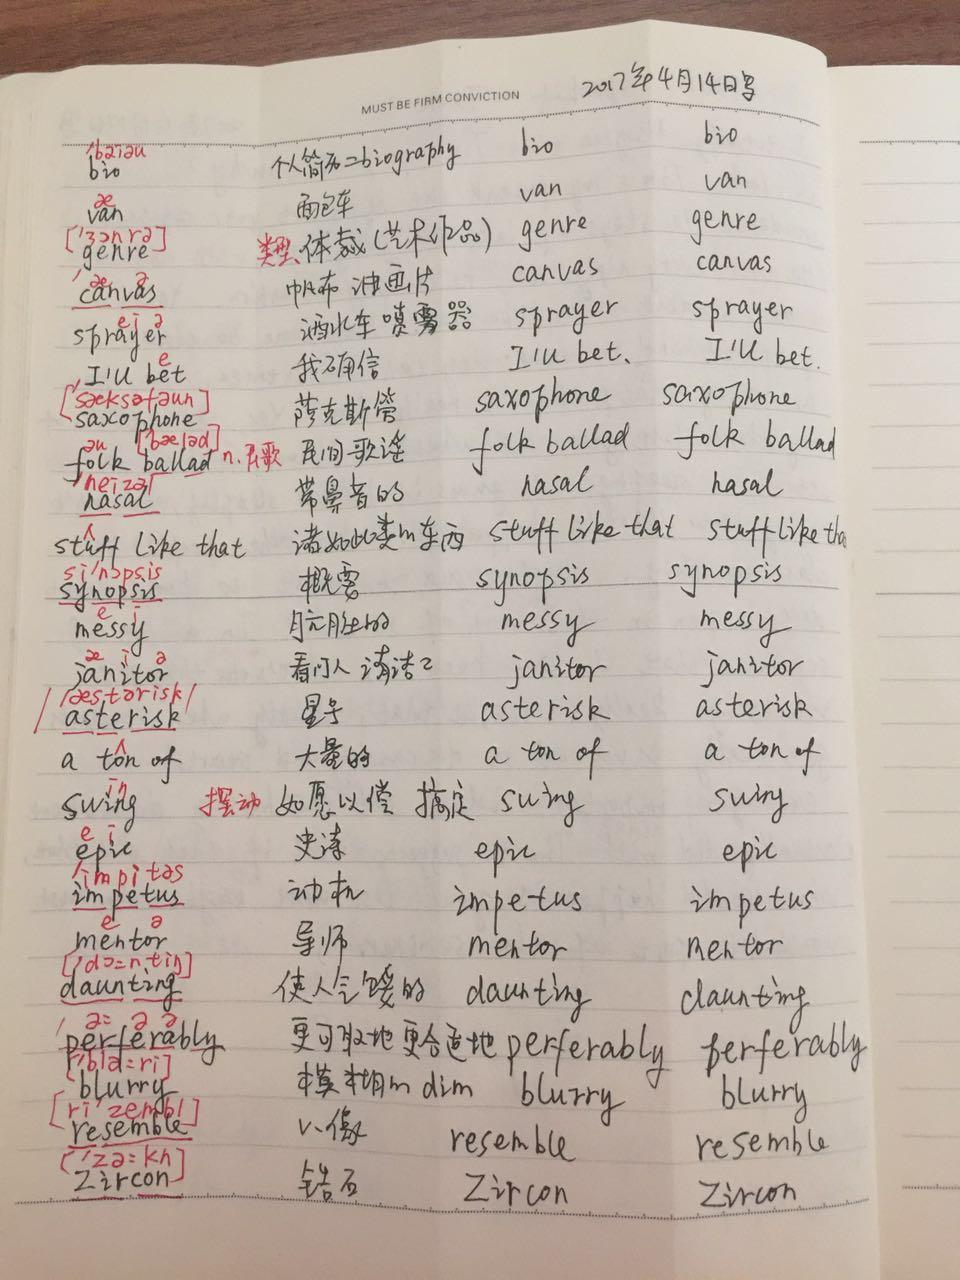 MUST BE FIRM CONVICTION 2017年4月14日写
'baiəu
bio 个人简历=biography bio bio
æ
van 面包车 van van
['ʒɔnrə]
genre 类型、体裁(艺术作品) genre genre
'æ ə
canvas 帆布 油画片 canvas canvas
ei ə
sprayer 洒水车 喷雾器 sprayer sprayer
e
I'll bet 我确信 I'll bet. I'll bet.
['sæksəfəun]
saxophone 萨克斯管 saxophone saxophone
əu ['bæləd]
folk ballad n.民歌 民间歌谣 folk ballad folk ballad
'neizəl
nasal 带鼻音的 nasal nasal
ʌ
stuff like that 诸如此类的东西 stuff like that stuff like tha
si'nɔpsis
synopsis 概要 synopsis synopsis
e i
messy 肮脏的 messy messy
æ i ə
janitor 看门人 清洁工 janitor janitor
/'æstərisk/
asterisk 星号 asterisk asterisk
ʌ
a ton of 大量的 a ton of a ton of
iŋ
swing 摆动 如愿以偿 搞定 swing swing
e i
epic 史诗 epic epic
'impitəs
impetus 动机 impetus impetus
e ə
mentor 导师 mentor mentor
['dɔ:ntiŋ]
daunting 使人气馁的 daunting daunting
' ə: ə ə
perferably 更可取地 更合适地 perferably perferably
['blə:ri]
blurry 模糊的 dim blurry blurry
[ri'zembl]
resemble v.像 resemble resemble
['zə:kn]
Zircon 锆石 Zircon Zircon